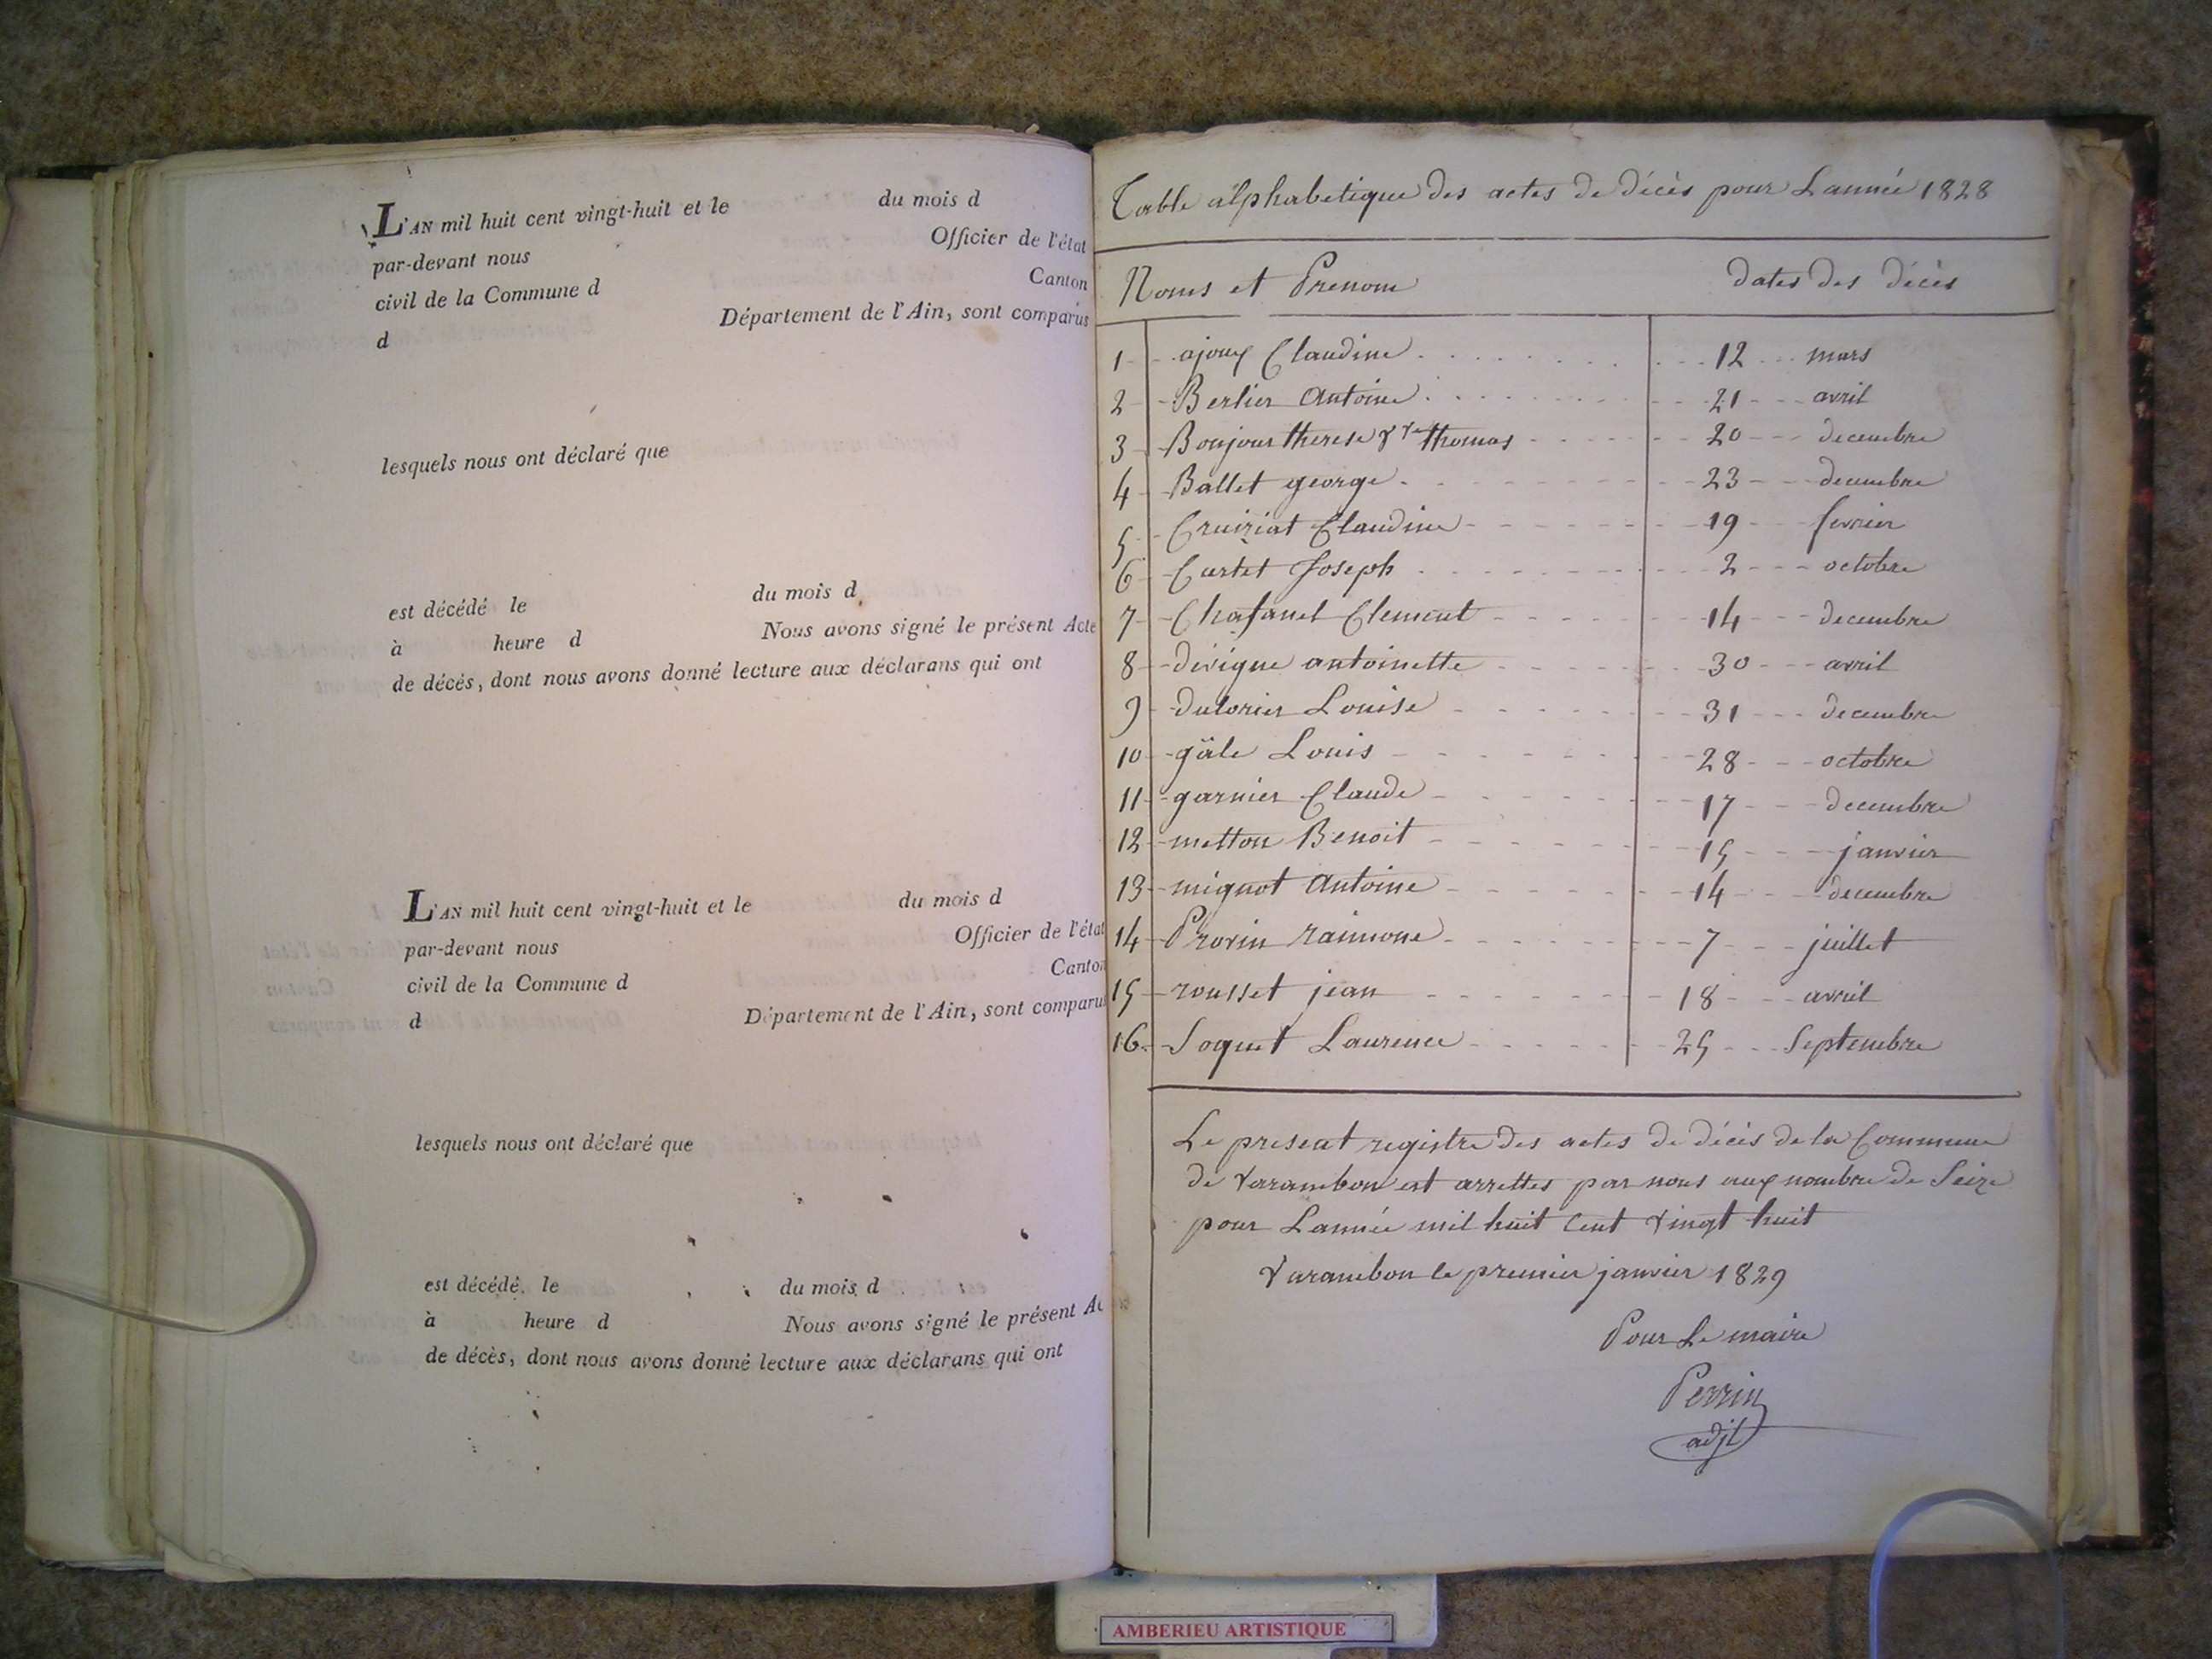 L'AN mil huit cent vingt-huit et le du mois d
par-devant nous Officier de l'état
civil de la Commune d Canton
d Département de l'Ain, sont comparus
lesquels nous ont déclaré que
est décédé le du mois d
à heure d Nous avons signé le présent Acte
de décès, dont nous avons donné lecture aux déclarans qui ont
L'AN mil huit cent vingt-huit et le du mois d
par-devant nous Officier de l'état
civil de la Commune d Canton
d Département de l'Ain, sont comparu
lesquels nous ont déclaré que
est décédé le du mois d
à heure d Nous avons signé le présent Ac
de décès, dont nous avons donné lecture aux déclarans qui ont
Table alphabetique des actes de décès pour Lannée 1828
Noms et Prenom dates des décès
1 ajoux Claudine 12 mars
2 Berlier Antoine 21 avril
3 Boujour therese Vve thomas 20 decembre
4 Ballet george 23 decembre
5 Cruiziat Claudine 19 fevrier
6 Curtet Joseph 2 octobre
7 Chafanel Clement 14 decembre
8 dévigne antoinette 30 avril
9 dulorier Louise 31 decembre
10 gäle Louis 28 octobre
11 garnier Claude 17 decembre
12 metton Benoit 15 janvier
13 mignot Antoine 14 decembre
14 Provin raimone 7 juillet
15 rousset jean 18 avril
16 Soquet Laurence 25 Septembre
Le present registre des actes de décès de la Commune
de Varambon est arrettes par nous aux nombre de Seize
pour Lannée mil huit Cent Vingt huit
Varambon le premier janvier 1829
Pour Le maire
Perrin
adjt
AMBERIEU ARTISTIQUE